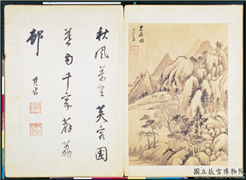 秋風萬里芙蓉國
暮雨千家薜荔
邨 其昌
國立故宮博物院